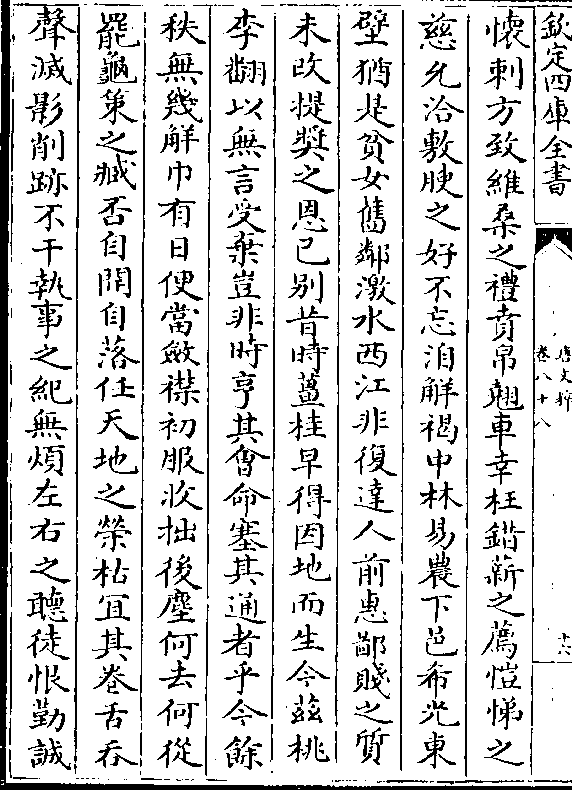 欽定四庫全書
唐文粹
卷八十八
十六
懷刺方致維桑之禮賁帛翹車幸枉錯薪之薦愷悌之
慈允洽敷腴之好不忘洎解褐中林易農下邑希光東
壁猶是貧女舊鄰激水西江非復達人前惠鄙賤之質
未改提奬之恩已别昔時薑桂早得因地而生今茲桃
李翻以無言受棄豈非時亨其會命塞其通者乎今餘
秩無幾解巾有日便當斂襟初服收拙後塵何去何從
罷龜策之臧否自開自落任天地之榮枯宜其卷舌吞
聲滅影削跡不干執事之紀無煩左右之聽徒恨勤誠